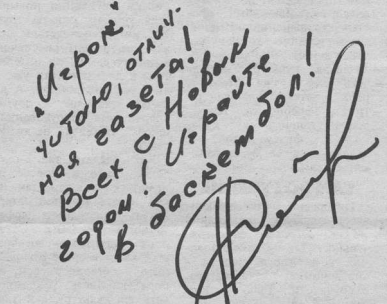 "Игрок"
читаю, отлич-
ная газета!
Всех с Новым
годом! Играйте
в баскетбол!